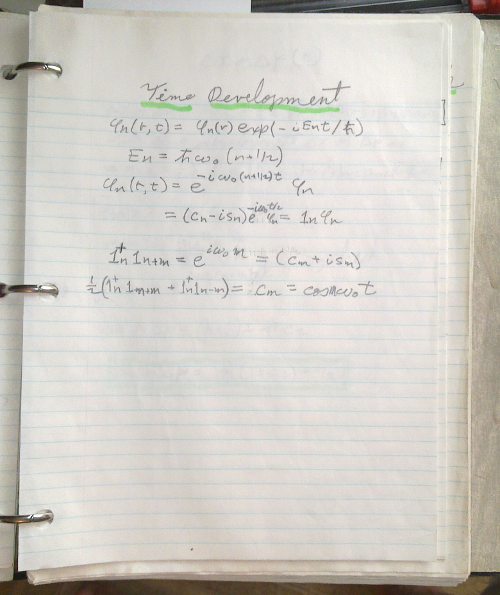 Time Development
φn(r,t) = φn(r) exp(-iEnt/ħ)
En = ħω₀(n+1/2)
φn(r,t) = e^{-iω₀(n+1/2)t} φn
= (cn-isn)e^{-iω₀t/2} φn = 1nφn
1n⁺1n+m = e^{iω₀m} = (cm+ism)
½(1n⁺1m+m + 1n⁺1n-m) = cm = cosmω₀t